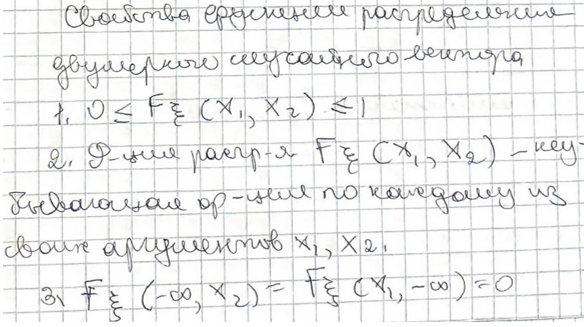 Свойства функции распределения
двумерного случайного вектора
1. 0 ≤ Fξ (x₁, x₂) ≤ 1
2. Ф-ция распр-я Fξ (x₁, x₂) – неу-
бывающая ф-ция по каждому из
своих аргументов x₁, x₂.
3. Fξ (-∞, x₂) = Fξ (x₁, -∞) = 0